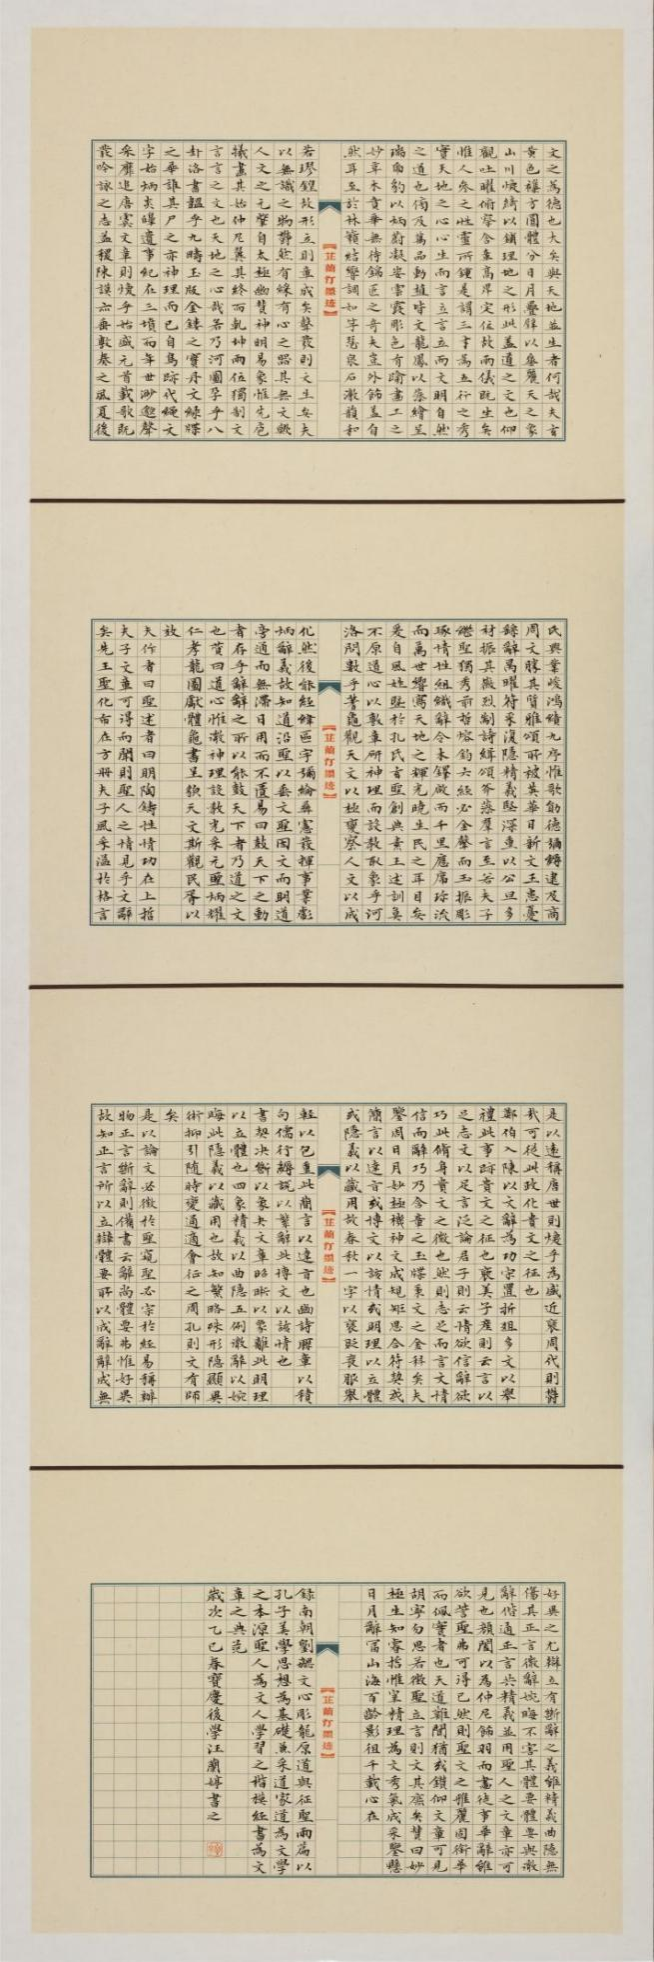 文之為德也大矣與天地並生者何哉夫玄
黃色襍方圓體分日月疊璧以垂麗天之象
山川煥綺以鋪理地之形此蓋道之文也仰
觀吐曜俯察含章高卑定位故兩儀既生矣
惟人參之性靈所鍾是謂三才為五行之秀
實天地之心心生而言立言立而文明自然
之道也傍及萬品動植皆文龍鳳以藻繪呈
瑞虎豹以炳蔚凝姿雲霞彫色有踰畫工之
妙草木賁華無待錦匠之奇夫豈外飾蓋自
然耳至於林籟結響調如竽瑟泉石激韻和
【芷蘭汀墨迹】
若璆鍠故形立則章成矣聲發則文生矣夫
以無識之物鬱然有綵有心之器其無文歟
人文之元肇自太極幽贊神明易象惟先庖
犧畫其始仲尼翼其終而乾坤兩位獨制文
言言之文也天地之心哉若乃河圖孕乎八
卦洛書韞乎九疇玉版金鏤之實丹文綠牒
之華誰其尸之亦神理而已自鳥跡代繩文
字始炳炎皞遺事紀在三墳而年世渺邈聲
采靡追唐虞文章則煥乎始盛元首載歌既
發吟詠之志益稷陳謨亦垂敷奏之風夏後
氏興業峻鴻績九序惟歌勛德彌縟逮及商
周文勝其質雅頌所被英華日新文王患憂
繇辭炳曜符采復隱精義堅深重以公旦多
材振其徽烈剬詩緝頌斧藻羣言至若夫子
繼聖獨秀前哲熔鈞六經必金聲而玉振彫
琢情性組織辭令木鐸啟而千里應席珍流
而萬世響寫天地之輝光曉生民之耳目矣
爰自風姓暨於孔氏玄聖創典素王述訓莫
不原道心以敷章研神理而設教取象乎河
洛問數乎蓍龜觀天文以極變察人文以成
【芷蘭汀墨迹】
化然後能經緯區宇彌綸彝憲發揮事業彪
炳辭義故知道沿聖以垂文聖因文而明道
旁通而無滯日用而不匱易曰鼓天下之動
者存乎辭辭之所以能鼓天下者乃道之文
也贊曰道心惟微神理設教光采元聖炳耀
仁孝龍圖獻體龜書呈貌天文斯觀民胥以
效
夫作者曰聖述者曰明陶鑄性情功在上哲
夫子文章可得而聞則聖人之情見乎文辭
矣先王聖化布在方冊夫子風采溢於格言
是以遠稱唐世則煥乎為盛近褒周代則鬱
哉可從此政化貴文之征也
鄭伯入陳以文辭為功宋置折俎多文以舉
禮此事跡貴文之征也褒美子產則云言以
足志文以足言泛論君子則云情欲信辭欲
巧此修身貴文之徵也然則志足而言文情
信而辭巧乃含章之玉牒秉文之金科矣夫
鑒周日月妙極機神文成規矩思合符契或
簡言以達旨或博文以該情或明理以立體
或隱義以藏用故春秋一字以褒貶喪服舉
【芷蘭汀墨迹】
輕以包重此簡言以達旨也幽詩聯章以積
句儒行縟說以繁辭此博文以該情也
書契決斷以象夬文章昭晰以象離此明理
以立體也四象精義以曲隱五例微辭以婉
晦此隱義以藏用也故知繁略殊形隱顯異
術抑引隨時變通適會征之周孔則文有師
矣
是以論文必徵於聖窺聖必宗於經易稱辨
物正言斷辭則備書云辭尚體要弗惟好異
故知正言所以立辯體要所以成辭辭成無
好異之尤辯立有斷辭之義雖精義曲隱無
傷其正言微辭婉晦不害其體要體要與微
辭偕通正言共精義並用聖人之文章亦可
見也顏闔以為仲尼飾羽而畫徒事華辭雖
欲訾聖弗可得已然則聖文之雅麗固銜華
而佩實者也天道難聞猶或鑽仰文章可見
胡寧勿思若徵聖立言則文其庶矣贊曰妙
極生知睿哲惟宰精理為文秀氣成采鑒懸
日月辭富山海百齡影徂千載心在
【芷蘭汀墨迹】
錄南朝劉勰文心彫龍原道與征聖兩篇以
孔子美學思想為基礎兼采道家道為文學
之本源聖人為文人學習之楷模經書為文
章之典范
歲次乙巳春寶慶後學汪蘭婷書之